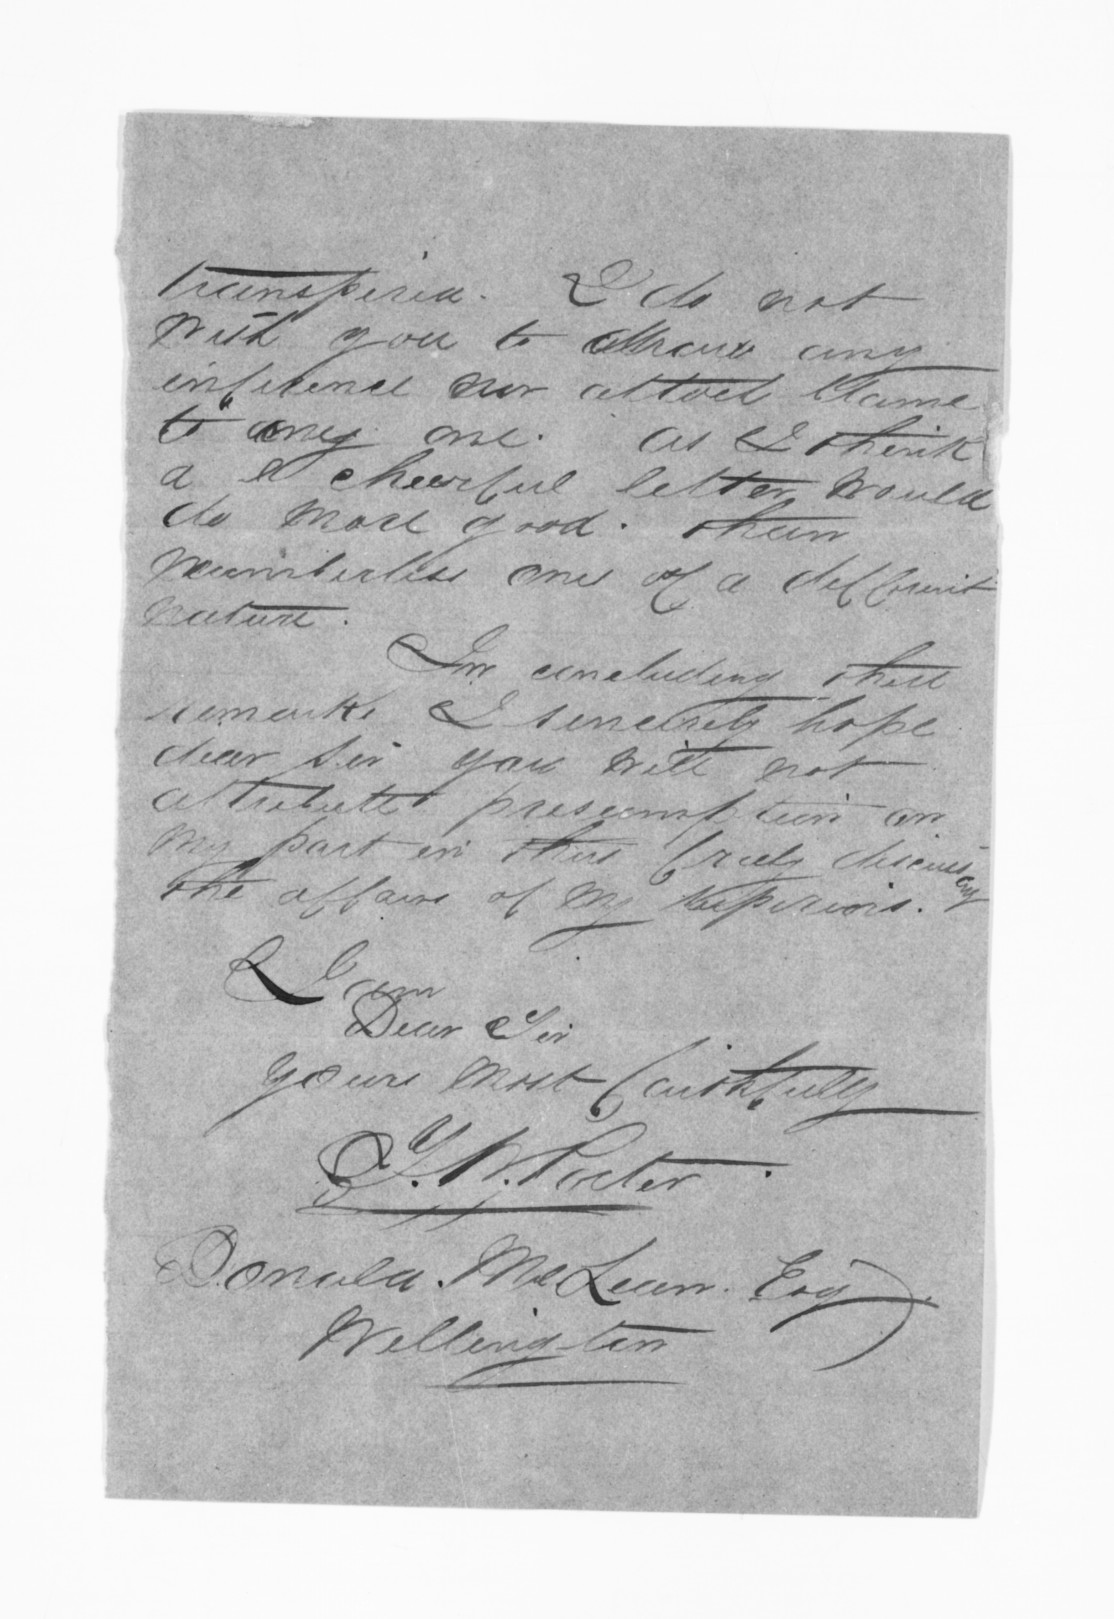 transpired. I do not
wish you to draw any
inference nor attach blame
to any one. as I think
a cheerful letter would
do more good. than
numberless ones of a different
nature.
In concluding these
remarks I sincerely hope
dear Sir you will not
attribute presumption on
my part in thus freely discussing
the affairs of my superiors.
I am
Dear Sir
yours most faithfully
T. W. Porter.
Donald. McLean. Esq
Wellington